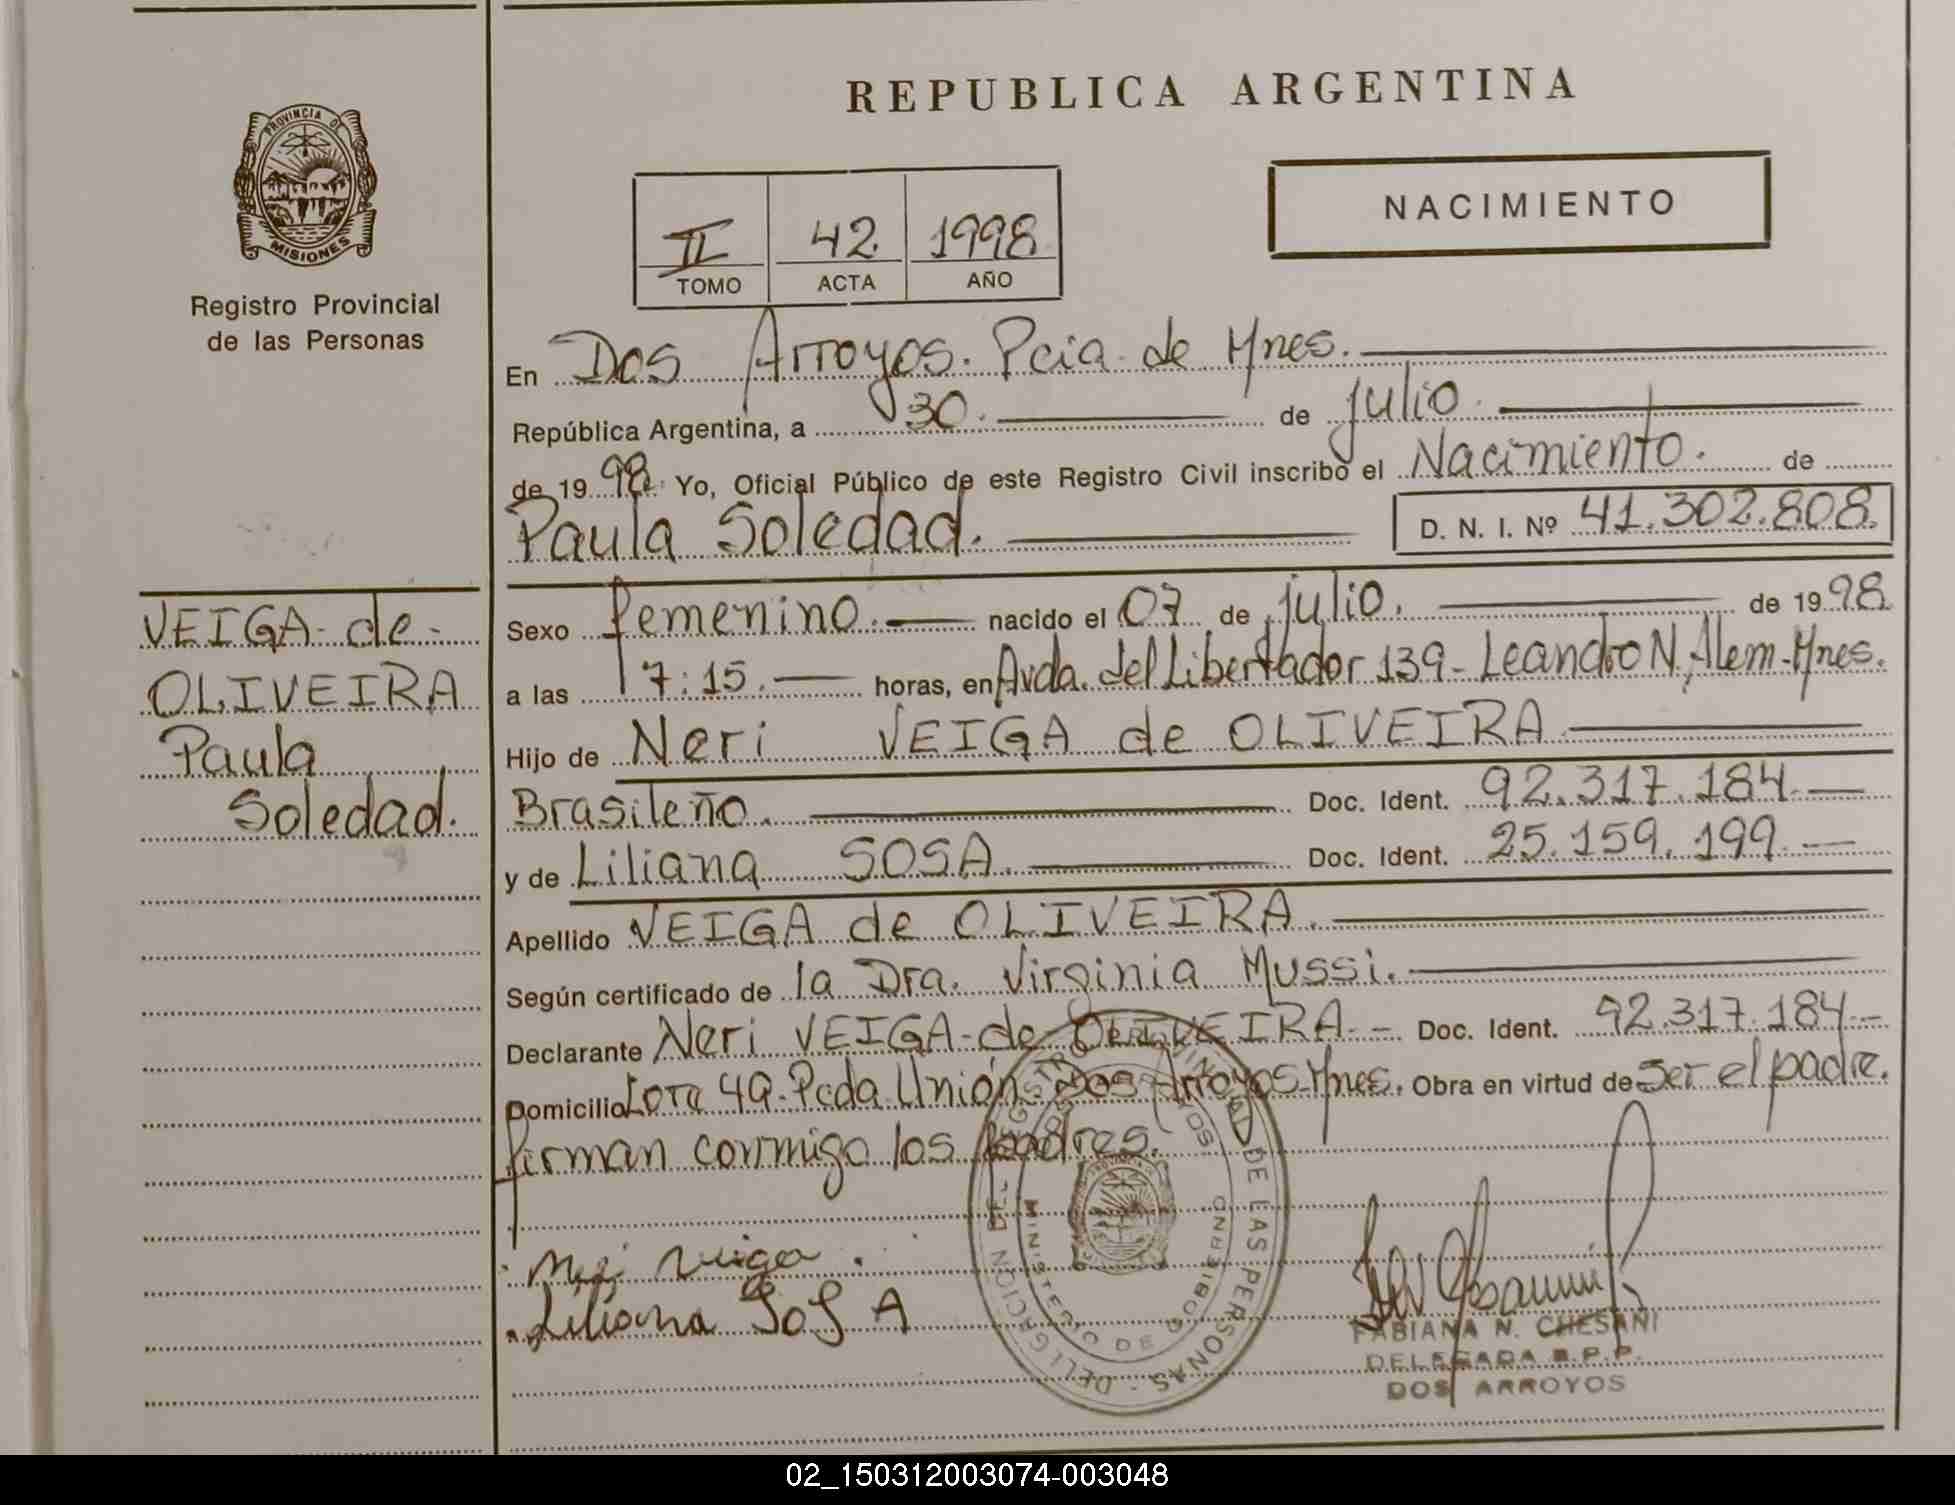 REPUBLICA ARGENTINA
PROVINCIA DE
MISIONES
Registro Provincial
de las Personas
NACIMIENTO
II 42 1998
TOMO ACTA AÑO
En Dos Arroyos. Pcia. de Mnes.
República Argentina, a 30. de julio.
de 1998. Yo, Oficial Público de este Registro Civil inscribo el Nacimiento. de
Paula Soledad. D. N. I. Nº 41.302.808.
VEIGA de
OLIVEIRA
Paula
Soledad.
Sexo femenino. nacido el 07 de julio. de 1998.
a las 17:15. horas, en Avda. del Libertador 139- Leandro N. Alem-Mnes.
Hijo de Neri VEIGA de OLIVEIRA
Brasileño. Doc. Ident. 92.317.184.
y de Liliana SOSA. Doc. Ident. 25.159.199.
Apellido VEIGA de OLIVEIRA.
Según certificado de la Dra. Virginia Mussi.
Declarante Neri VEIGA de OLIVEIRA. Doc. Ident. 92.317.184
Domicilio Lote 49. Pcda Unión Dos Arroyos-Mnes. Obra en virtud de ser el padre.
firman conmigo los padres.
Veiga
Liliana SoSA
DELEGACION DEL REGISTRO PROVINCIAL DE LAS PERSONAS
DOS ARROYOS
MINISTERIO DE GOBIERNO
FABIANA N. CHESANI
DELEGADA R.P.P.
DOS ARROYOS
02_150312003074-003048